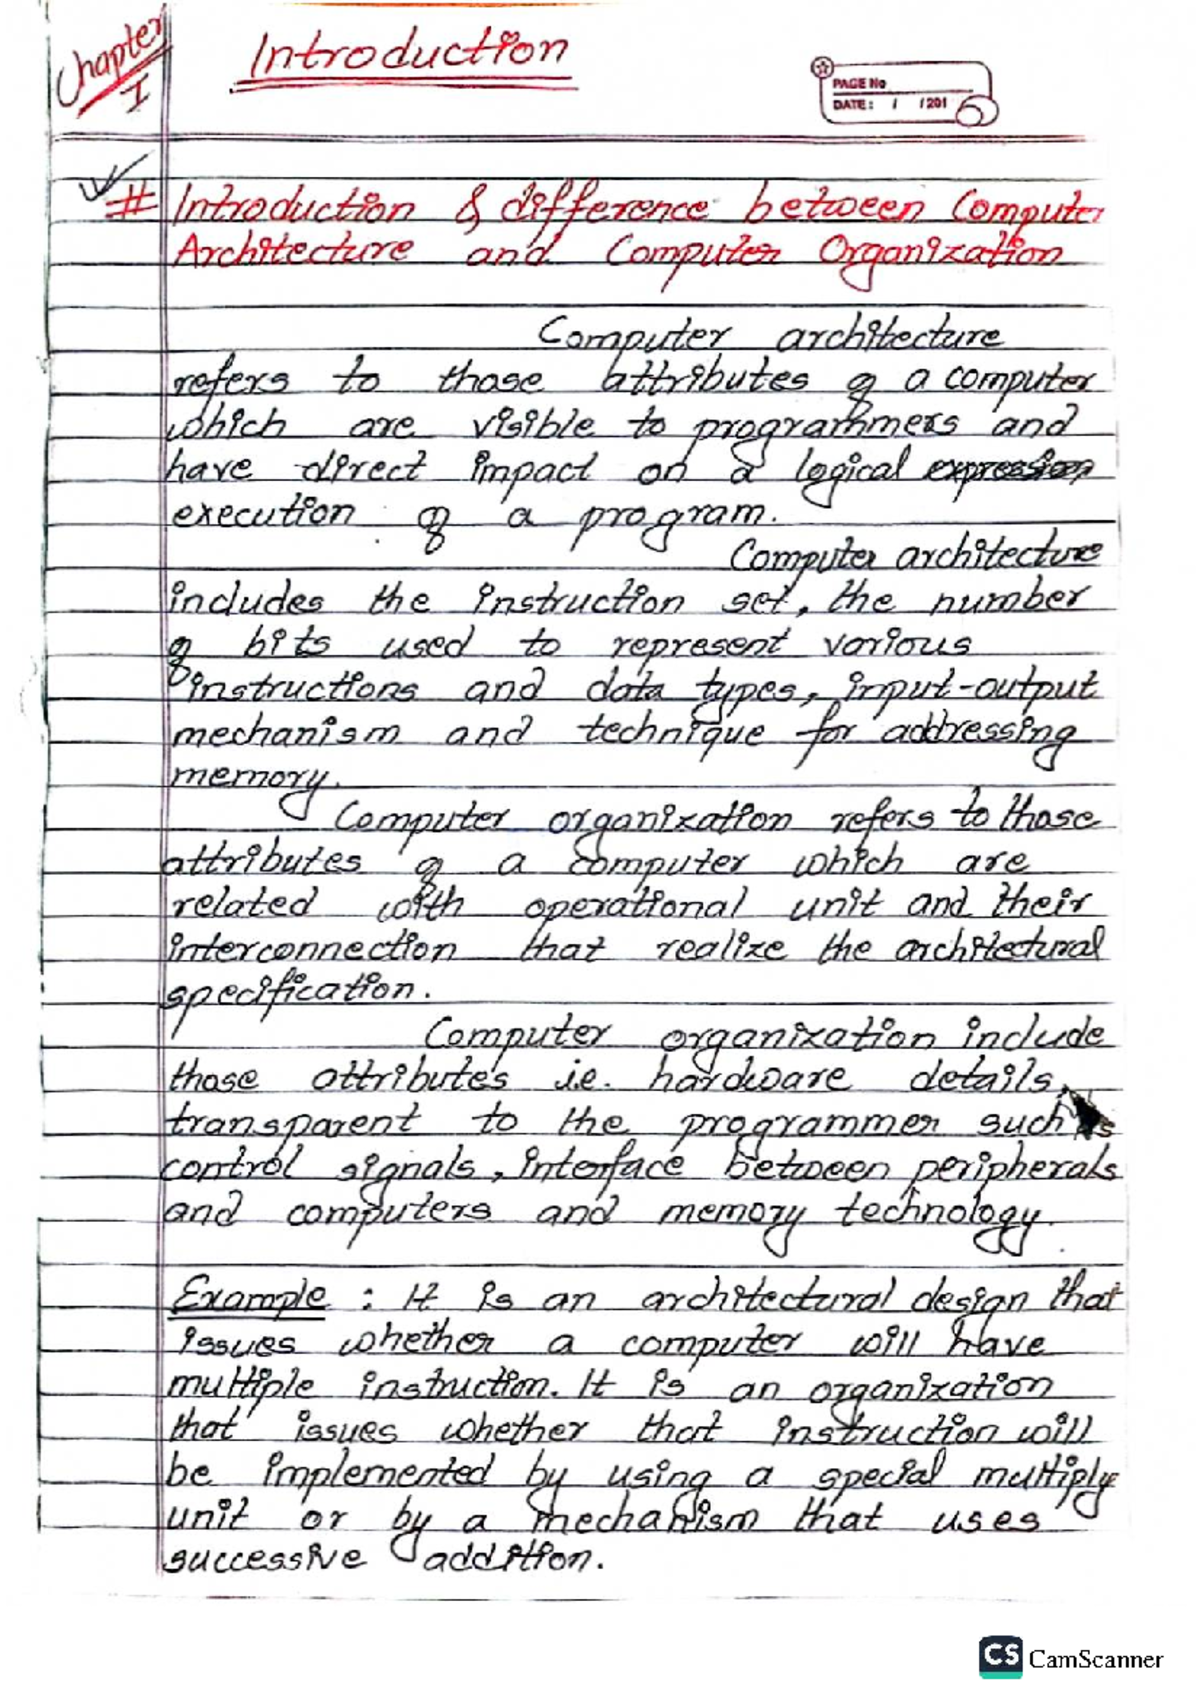 Chapter I
Introduction
PAGE No
DATE: / /201
# Introduction & difference between Computer
Architecture and Computer Organization
Computer architecture
refers to those attributes of a computer
which are visible to programmers and
have direct impact on a logical expression
execution of a program.
Computer architecture
includes the instruction set, the number
of bits used to represent various
instructions and data types, input-output
mechanism and technique for addressing
memory.
Computer organization refers to those
attributes of a computer which are
related with operational unit and their
interconnection that realize the architectural
specification.
Computer organization include
those attributes i.e. hardware details,
transparent to the programmer such as
control signals, interface between peripherals
and computers and memory technology.
Example : It is an architectural design that
issues whether a computer will have
multiple instruction. It is an organization
that issues whether that instruction will
be implemented by using a special multiply
unit or by a mechanism that uses
successive addition.
CS CamScanner